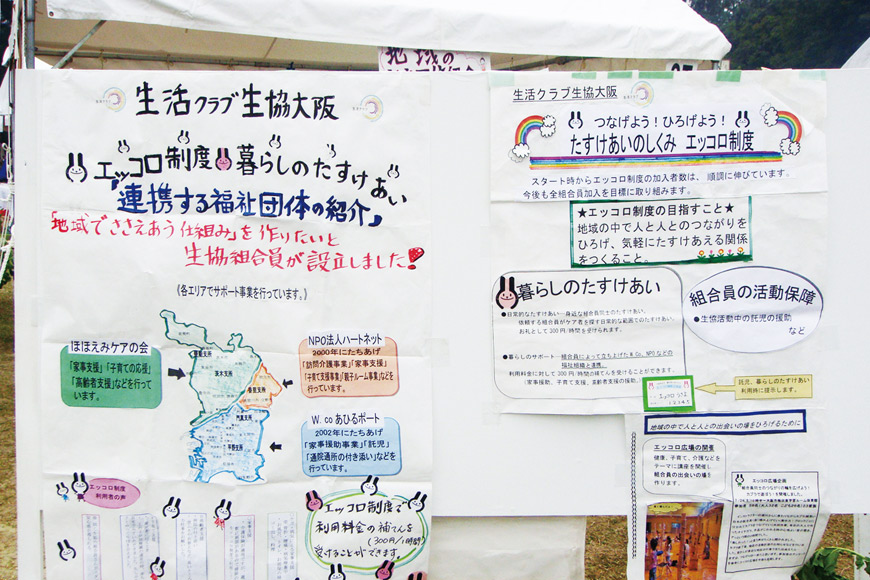 地域の
生活クラブ生協大阪
エッコロ制度 暮らしのたすけあい
「連携する福祉団体の紹介」
「地域でささえあう仕組み」を作りたいと
生協組合員が設立しました!
《各エリアでサポート事業を行っています。》
ほほえみケアの会
「家事支援」「子育ての応援」
「高齢者支援」などを行って
います。
茨木支所
門真支所
平野支所
NPO法人ハートネット
2000年にたちあげ
「訪問介護事業」「家事支援」
「子育て支援事業」「親子ルーム事業」などを
行っています。
W.coあひるポート
2002年にたちあげ
「家事援助事業」「託児」
「通院通所の付き添い」などを
行っています。
エッコロ制度
利用者の声
エッコロ制度で
利用料金の補てんを
(300円/1時間)
受けることができます。
生活クラブ生協大阪
つなげよう!ひろげよう!
たすけあいのしくみ エッコロ制度
スタート時からエッコロ制度の加入者数は、順調に伸びています。
今後も全組合員加入を目標に取り組みます。
★エッコロ制度の目指すこと★
地域の中で人と人とのつながりを
ひろげ、気軽にたすけあえる関係
をつくること。
暮らしのたすけあい
●日常的なたすけあい…身近な組合員同士のたすけあい。
依頼する組合員がケア者を探す日常的な範囲でのたすけあい。
お礼として300円/時間を受けられます。
●暮らしのサポート…組合員によって立ち上げたW.Co、NPOなどの
福祉組織と連携。
利用料金に対して300円/時間の補てんを受けることができます。
(家事援助、子育て支援、高齢者の援助。)
組合員の活動保障
●生協活動中の託児の援助
など
託児、暮らしのたすけあい
利用時に提示します。
地域の中で人と人との出会いの場をひろげるために
エッコロ広場の開催
健康、子育て、介護などを
テーマに講座を開催し
組合員の出会いの場を
作ります。
エッコロ広場企画